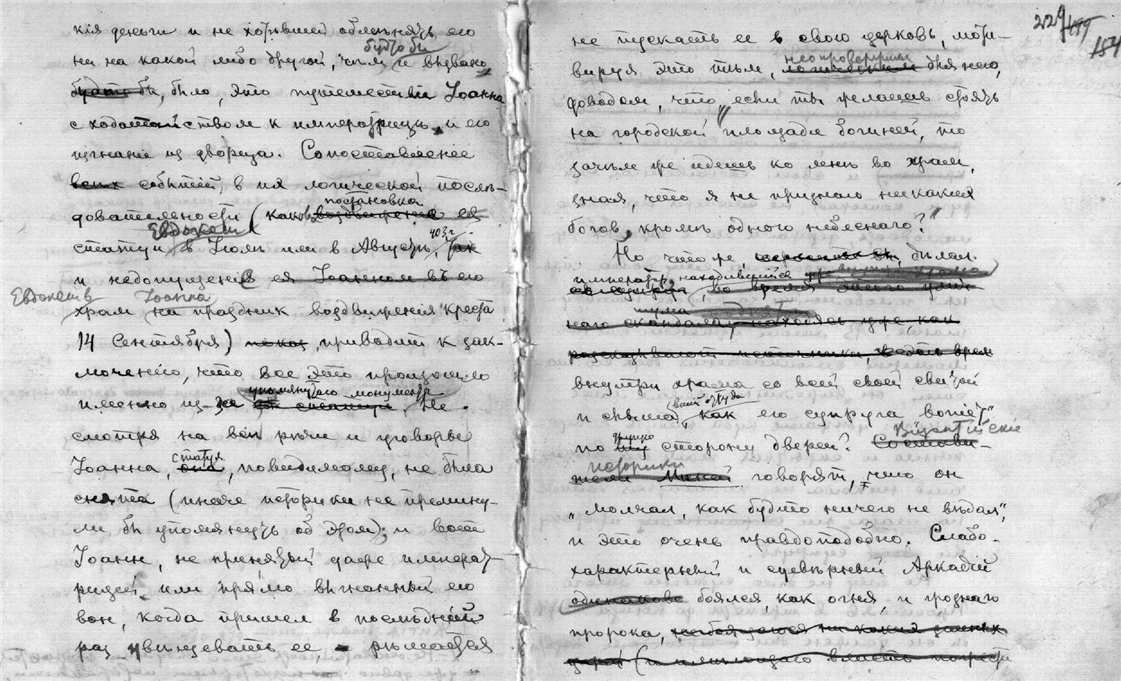 кія деньги и не хотѣвшей обмѣнять его
ни на какой либо другой, чѣмъ и вызвано
будто бы
было, это путешествіе Іоанна
с ходатайством к императрицѣ и его
изгнаніе из дворца. Сопоставленіе
всѣх событій, в их логической послѣ-
довательности (какъ постановка
Евдокіи
статуи в Іюлѣ или в Августѣ, 403 г.
и недопущеніе ея Іоанном въ его
Евдокіѣ Іоанна
храм на праздник воздвиженія Креста
14 Сентября) приводит к зак-
люченію, что все это произошло
упомянутаго монумента
именно из-за Не-
смотря на всѣ рѣчи и уговоры
Іоанна, статуя, повидимому, не была
снята (иначе историки не премину-
ли бы упомянуть об этом); и вот
Іоанн, не принятый даже императ-
рицей или прямо выгнанный его
вон, когда пришел в послѣдній
раз увѣщевать ее, рѣшается
229
154
не пускать ее в свою церковь, моти-
вируя это тѣм, неопровержимым для него,
доводом, что „если ты желаешь стоять
на городской площади богиней, то
зачѣм же идешь ко мнѣ во храм,
зная, что я не признаю никаких
богов, кромѣ одного небеснаго?"
Но что же, дѣлал
император, находившійся
внутри храма со всей своей свитой
и слыша, как его супруга вопіет
по другую сторону дверей? Византійскіе
историки говорят, что он
„молчал, как будто ничего не видал",
и это очень правдоподобно. Слабо-
характерный и суевѣрный Аркадій
одинаково боялся, как огня, и грознаго
пророка,